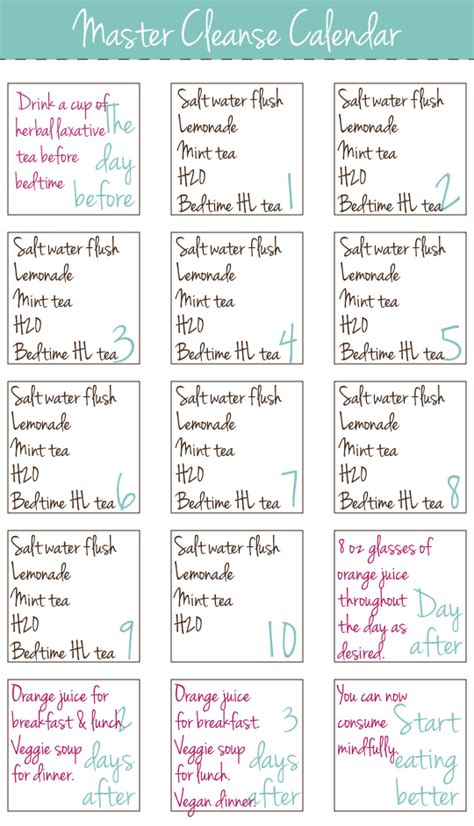 Master Cleanse Calendar
Drink a cup of
herbal laxative
tea before
bedtime
The
day
before
Salt water flush
Lemonade
Mint tea
H2O
Bedtime HL tea
1
Salt water flush
Lemonade
Mint tea
H2O
Bedtime HL tea
2
Salt water flush
Lemonade
Mint tea
H2O
Bedtime HL tea
3
Salt water flush
Lemonade
Mint tea
H2O
Bedtime HL tea
4
Salt water flush
Lemonade
Mint tea
H2O
Bedtime HL tea
5
Salt water flush
Lemonade
Mint tea
H2O
Bedtime HL tea
6
Salt water flush
Lemonade
Mint tea
H2O
Bedtime HL tea
7
Salt water flush
Lemonade
Mint tea
H2O
Bedtime HL tea
8
Salt water flush
Lemonade
Mint tea
H2O
Bedtime HL tea
9
Salt water flush
Lemonade
Mint tea
H2O
10
8 oz glasses of
orange juice
throughout
the day as
desired.
Day
after
Orange juice for
breakfast & lunch.
Veggie soup
for dinner.
2
days
after
Orange juice
for breakfast.
Veggie soup
for lunch.
Vegan dinner.
3
days
after
You can now
consume
mindfully.
Start
eating
better